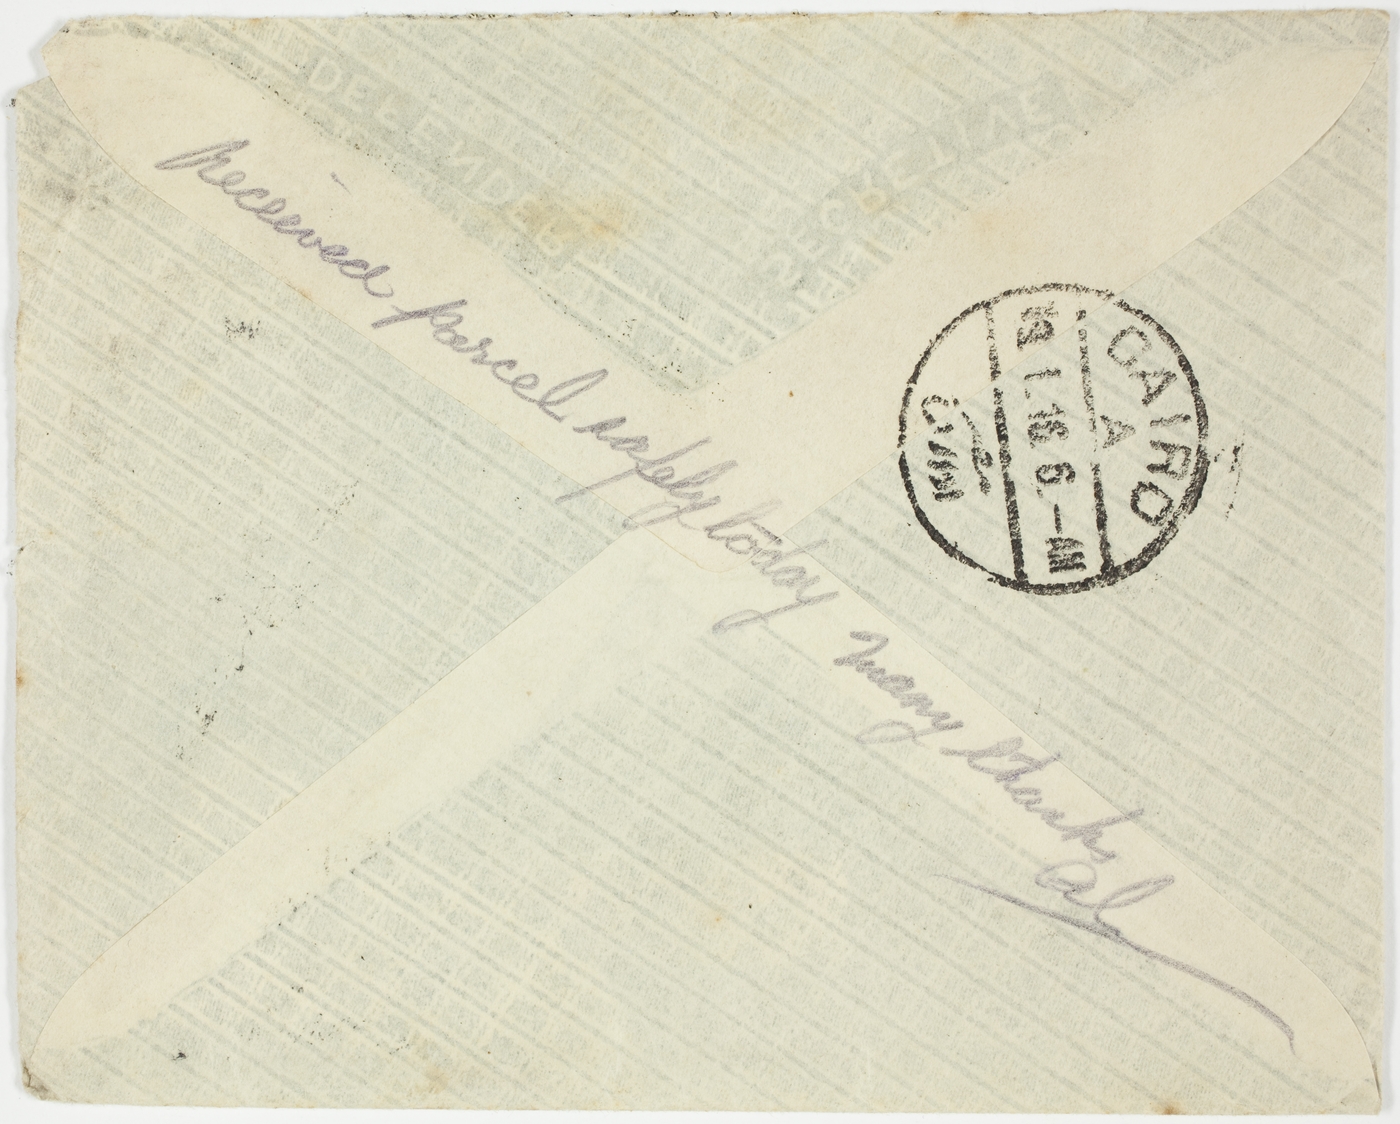 Received parcel safely today many thanks
Al
CAIRO
A
1.16 6 - AM